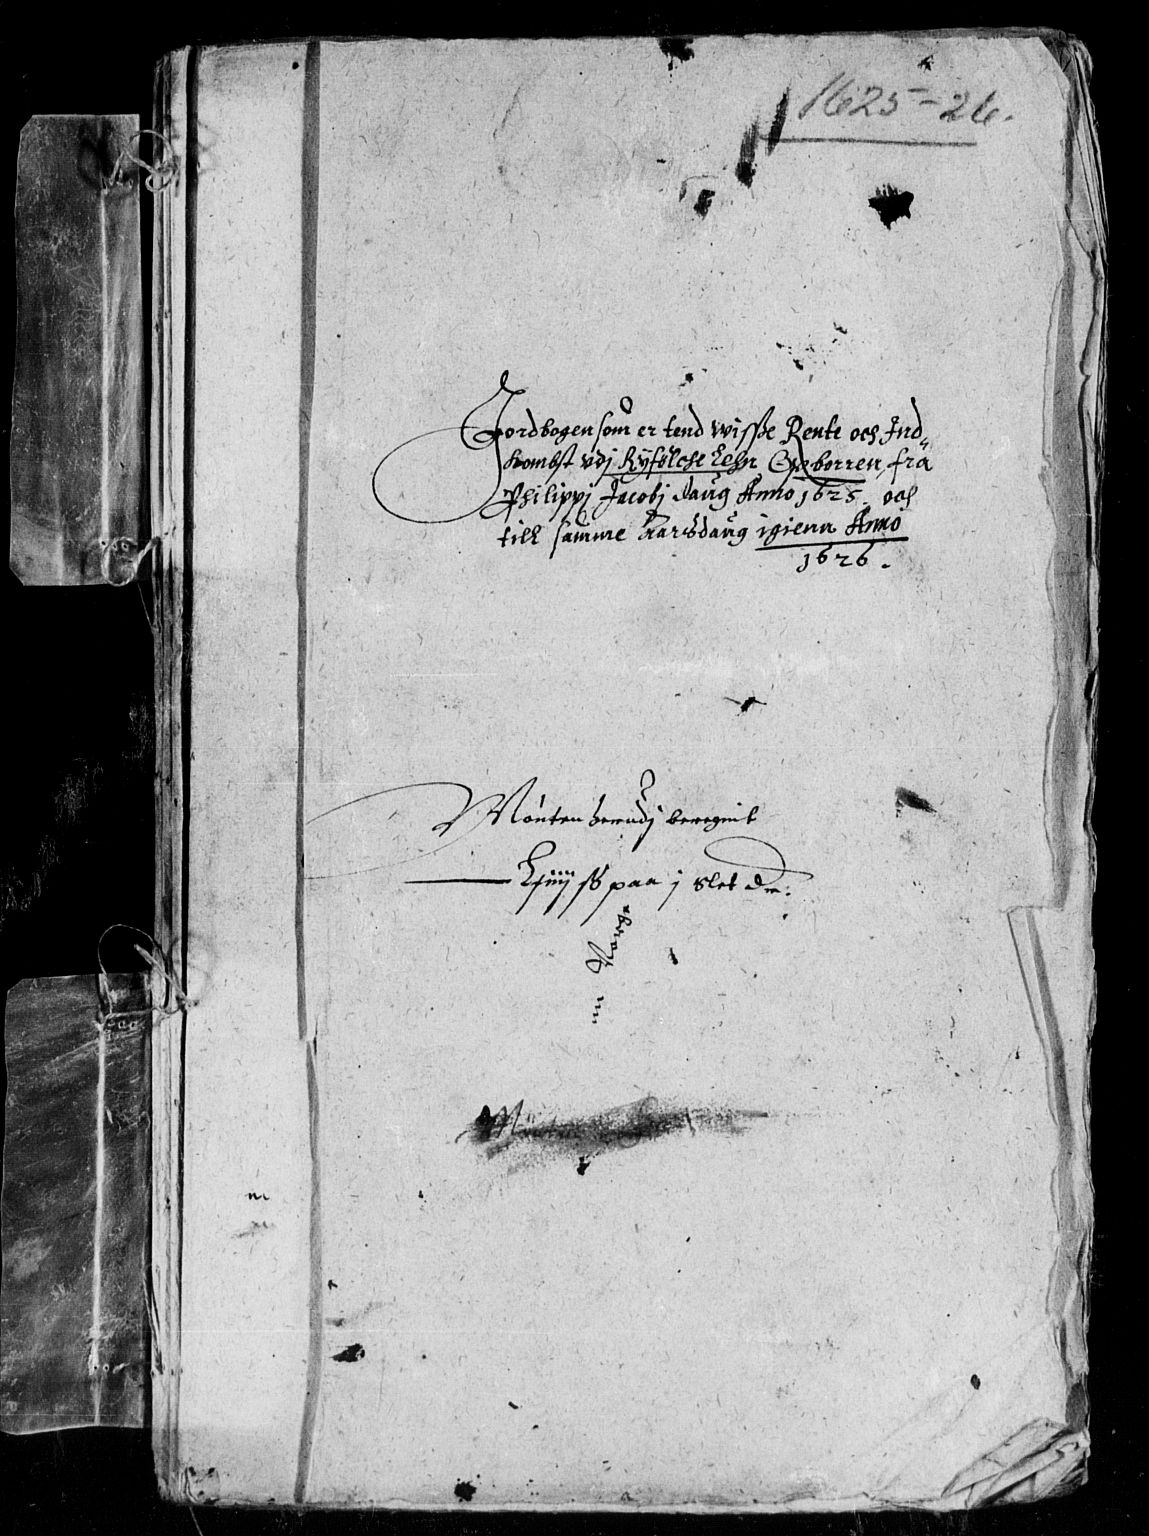 1625-26.
Jordbogen som er tend wisse Rente och Ind„
kombst udj Ryfölche Lehn Opborren, fra
Philippj Jacobj daug Anno 1625. och
till samme Aarsdaug igienn Anno
1626.
Mönten herudj beregnit
paa j slet dr: